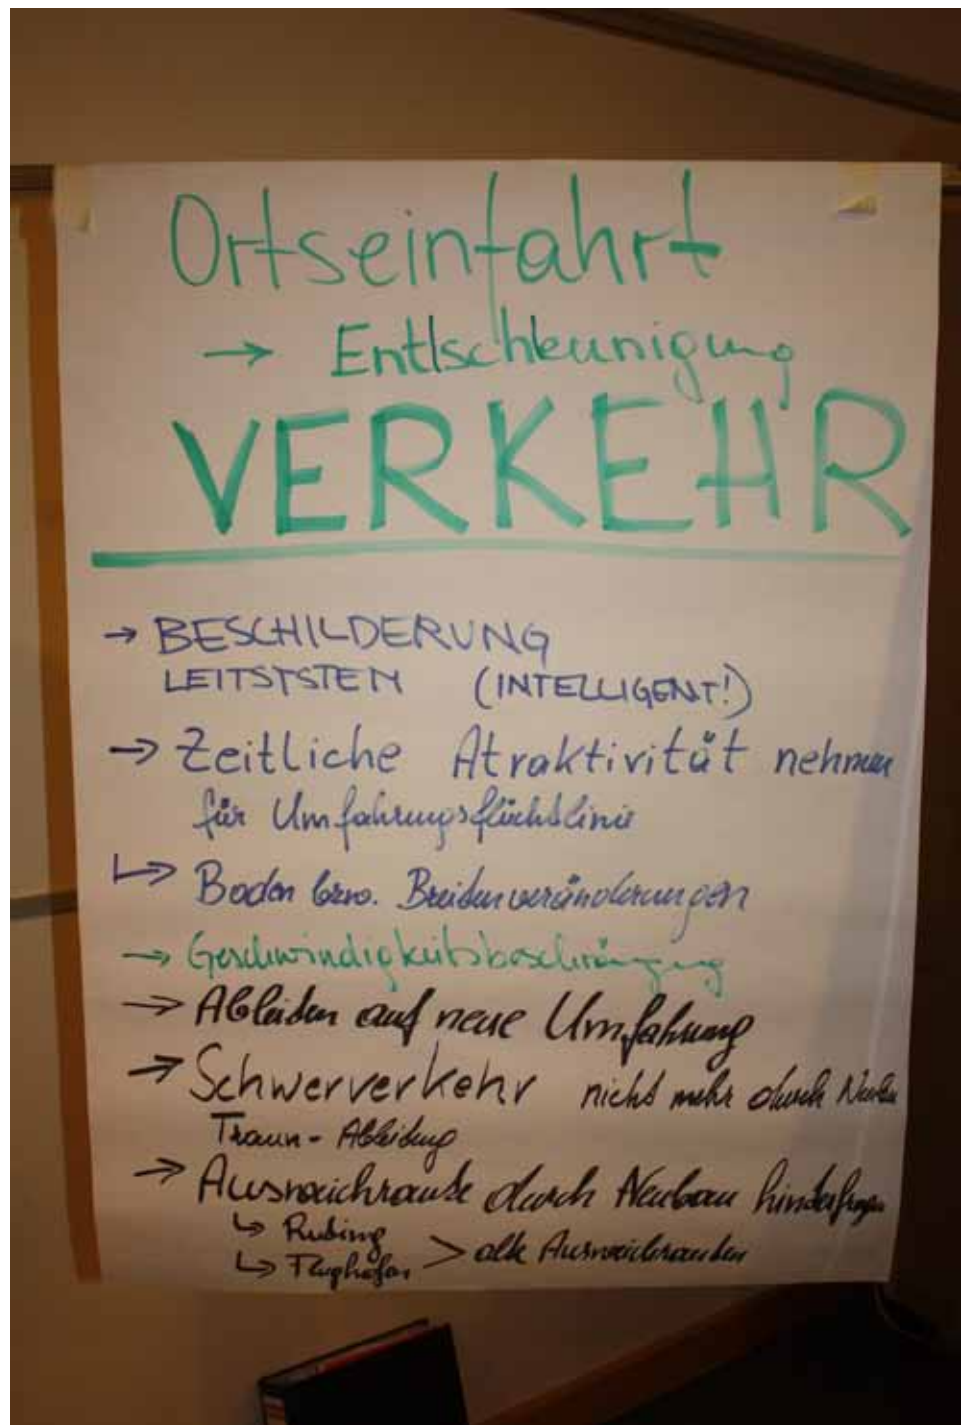 Ortseinfahrt
→ Entlschleunigung
VERKEHR
→ BESCHILDERUNG
LEITSYSTEM (INTELLIGENT!)
→ Zeitliche Atraktivität nehmen
für Umfahrungsflüchtslinie
↳ Boden bzw. Breitenveränderungen
→ Geschwindigkeitsbeschränkung
→ Ableiten auf neue Umfahrung
→ Schwerverkehr nicht mehr durch
Traun - Ableitung
→ Ausweichroute durch Neubau hinterfragen
↳ Rubing
↳ Flughafen > alte Ausweichrouten